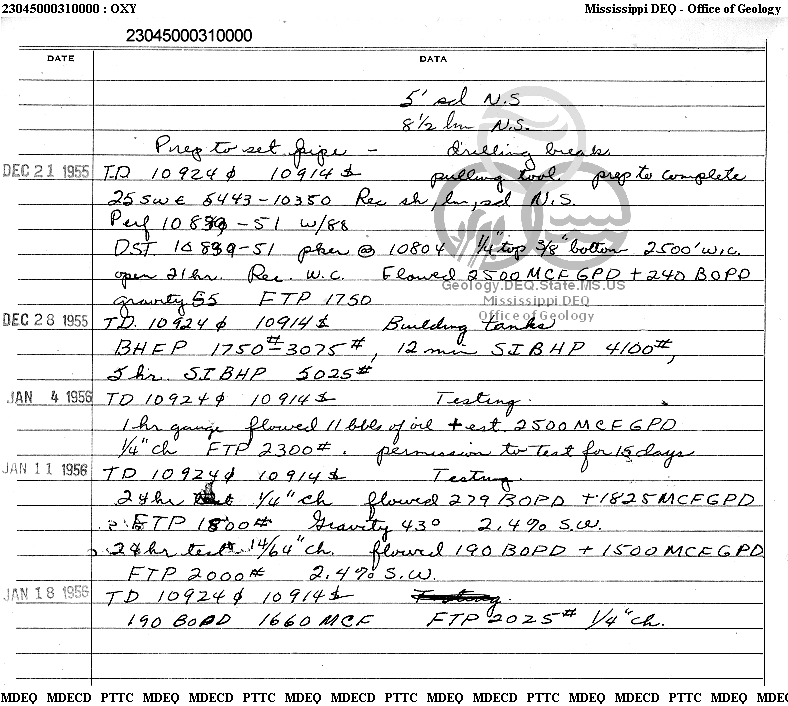 23045000310000 : OXY Mississippi DEQ - Office of Geology
23045000310000
DATE DATA
5' sd N.S
8 1/2 lm N.S.
Prep to set pipe - drilling break.
DEC 21 1955 T.D 10924 ϕ 10914 $ pulling tool. prep to complete
25 swc 5443-10350 Rec sh, lm, sd N.S.
Perf 10839-51 w/88
DST. 10839-51 pker @ 10804 1/4" top 3/8" bottom 2500' w.c.
open 21 hr. Rec. W.C. Flowed 2500 MCFGPD + 240 BOPD
gravity 55 FTP 1750
Geology.DEQ.State.MS.US
Mississippi DEQ
Office of Geology
DEC 28 1955 T.D. 10924 ϕ 10914 $ Building tanks
BHFP 1750#-3075#, 12 min SIBHP 4100#,
5 hr. SIBHP 5025#
JAN 4 1956 TD 10924 ϕ 10914 $ Testing.
1 hr gauge flowed 11 bbls of oil + est. 2500 MCFGPD
1/4" ch FTP 2300#. permission to Test for 15 days
JAN 11 1956 TD 10924 ϕ 10914 $ Testing.
24 hr test 1/4" ch flowed 279 BOPD + 1825 MCFGPD
FTP 1800# Gravity 43° 2.4% S.W.
24 hr test 14/64" ch. flowed 190 BOPD + 1500 MCFGPD
FTP 2000# 2.4% S.W.
JAN 18 1956 TD 10924 ϕ 10914 $ Testing.
190 BOPD 1660 MCF FTP 2025# 1/4" ch.
MDEQ MDECD PTTC MDEQ MDECD PTTC MDEQ MDECD PTTC MDEQ MDECD PTTC MDEQ MDECD PTTC MDEQ MDE